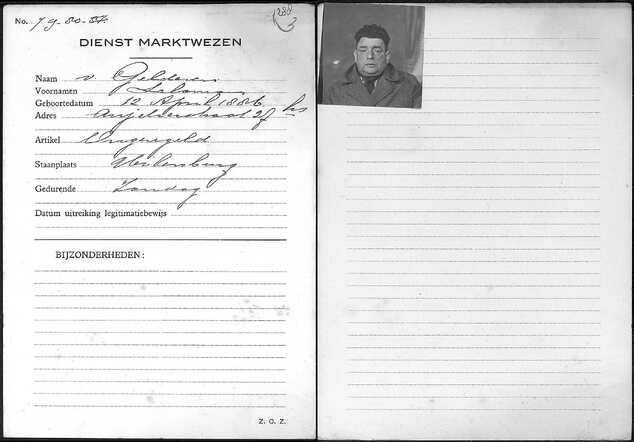 No. 79-80-84.
DIENST MARKTWEZEN
Naam v. Gelderen
Voornamen Salomon
Geboortedatum 12 April 1886
Adres Anjelierstraat hs
Artikel Ongeregeld
Staanplaats Uilenburg
Gedurende Zondag
Datum uitreiking legitimatiebewijs
BIJZONDERHEDEN:
Z. O. Z.